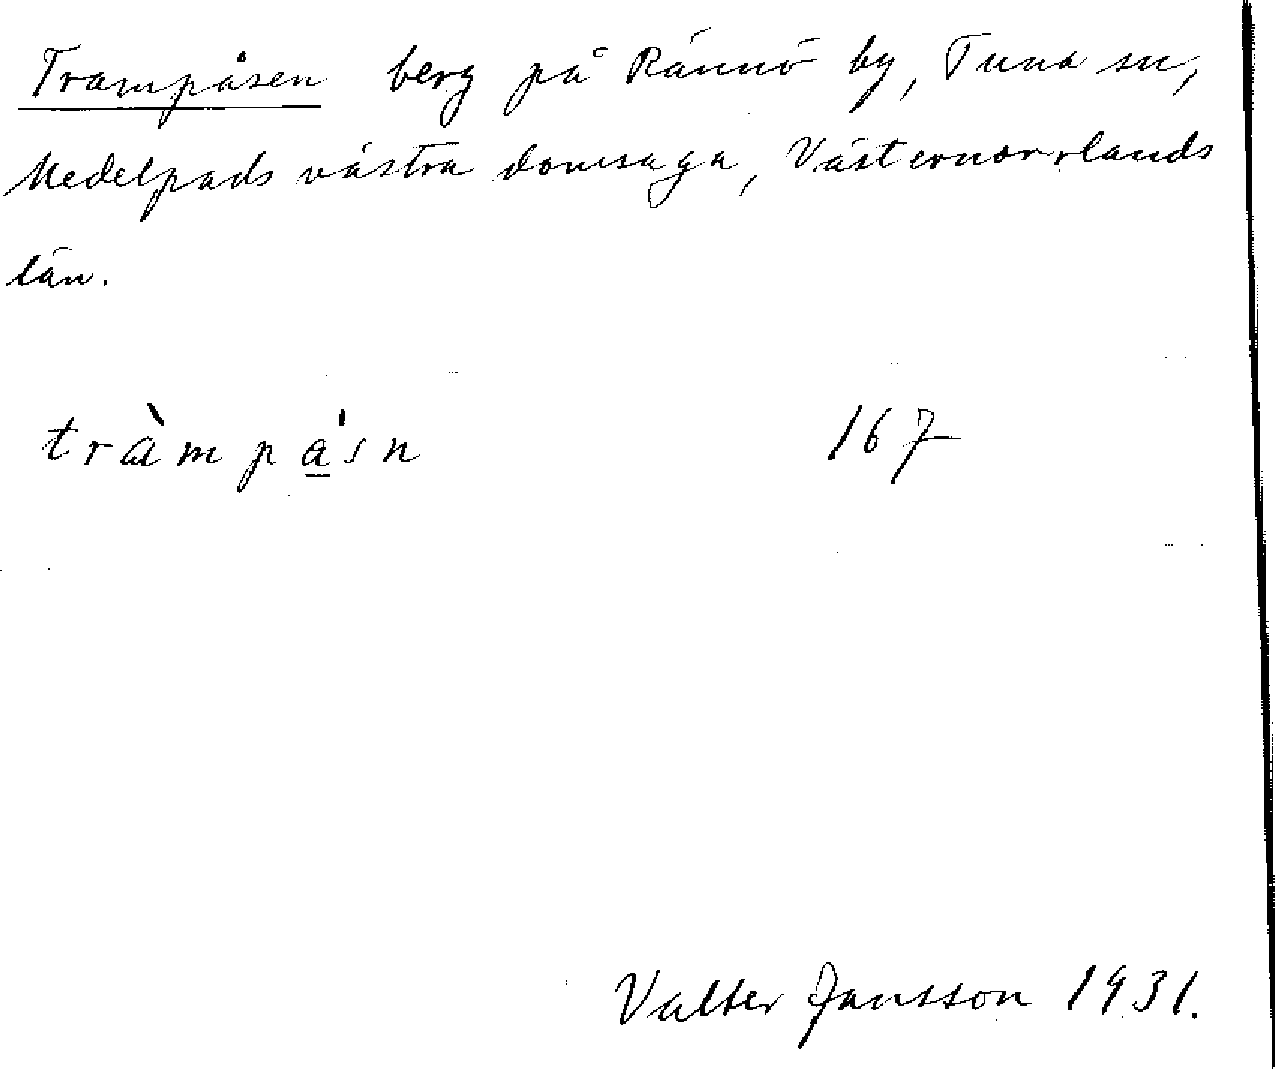 Trampåsen berg på Rännö by, Tuna sn,
Medelpads västra domsaga, Västernorrlands
län.
tràmpa̲'sn 167
Valter Jansson 1931.